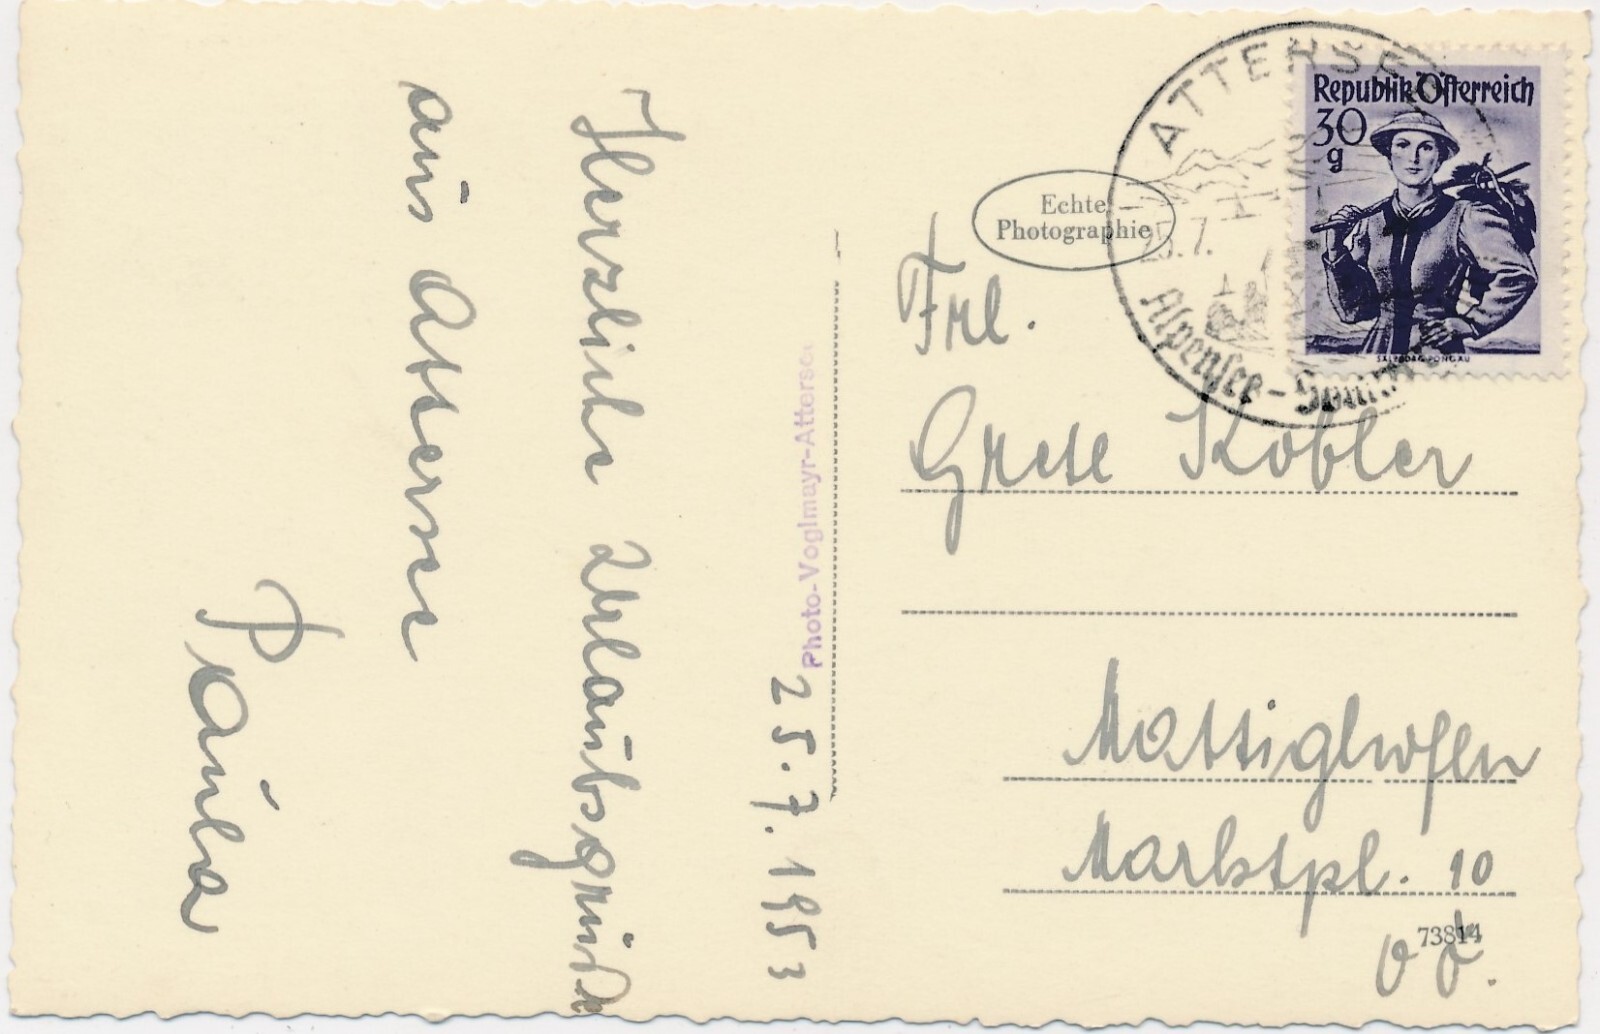 25.7.1953
Herzliche Urlaubsgrüße
aus Attersee
Paula
Photo-Voglmayr-Attersee
Echte
Photographie
ATTERSEE
25.7.
Alpensee-
Republik Österreich
30
g
SALZBURG, PONGAU
Frl.
Grete Kobler
Mattighofen
Marktpl. 10
O Ö.
73814